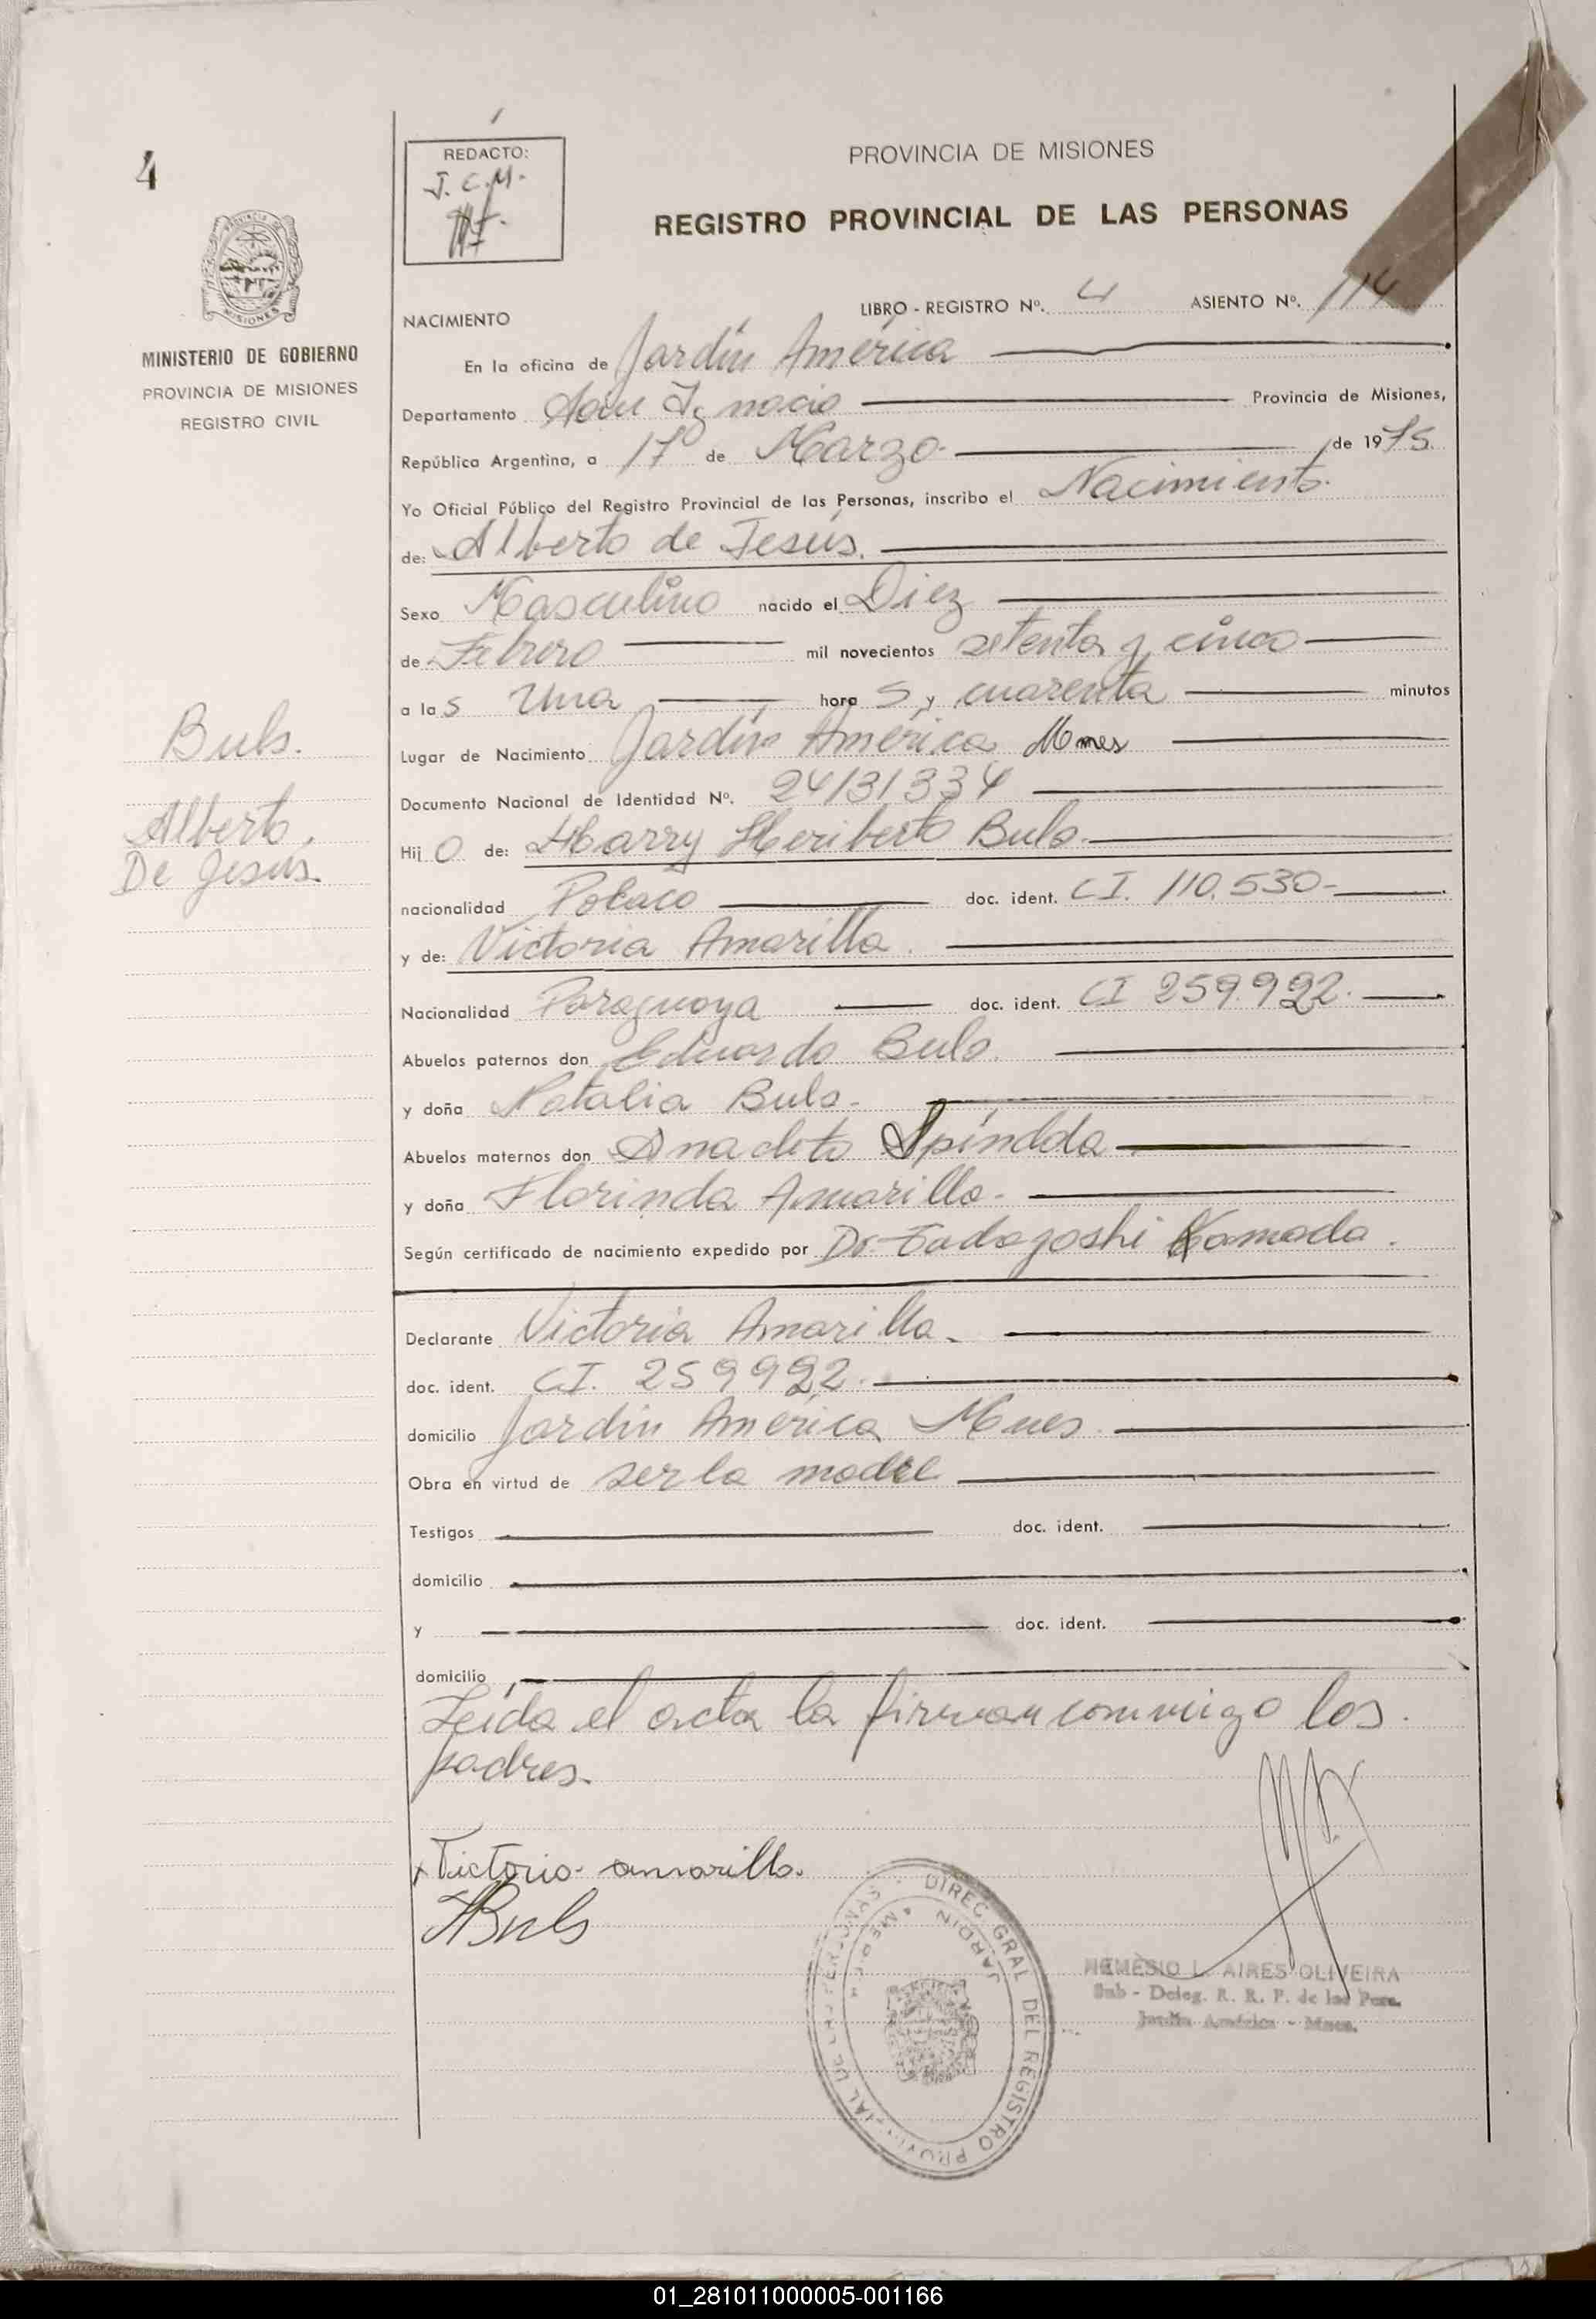 4
REDACTO:
J. C. M.
PROVINCIA DE MISIONES
REGISTRO PROVINCIAL DE LAS PERSONAS
MISIONES
MINISTERIO DE GOBIERNO
PROVINCIA DE MISIONES
REGISTRO CIVIL
LIBRO - REGISTRO Nº. 4 ASIENTO Nº. 114
NACIMIENTO
En la oficina de Jardín América
Departamento San Ignacio Provincia de Misiones,
República Argentina, a 17 de Marzo- de 1975.
Yo Oficial Público del Registro Provincial de las Personas, inscribo el Nacimiento.
de: Alberto de Jesús.
Sexo Masculino nacido el Diez
de Febrero mil novecientos setenta y cinco
a las Una horas y cuarenta minutos
Lugar de Nacimiento Jardín América Mnes
Documento Nacional de Identidad Nº. 24131334
Hijo de: Harry Heriberto Buls.
nacionalidad Polaco doc. ident. CI. 110.530-
y de: Victoria Amarilla.
Nacionalidad Paraguaya doc. ident. CI 259.992.
Abuelos paternos don Eduardo Buls.
y doña Natalia Buls.
Abuelos maternos don Anacleto Spíndola
y doña Florinda Amarilla.
Según certificado de nacimiento expedido por Dr. Tadayoshi Kamada.
Declarante Victoria Amarilla.
doc. ident. CI. 259992.
domicilio Jardín América Mnes
Obra en virtud de ser la madre
Testigos doc. ident.
domicilio
y doc. ident.
domicilio
Leída el acta la firman conmigo los
padres.
Victoria amarilla.
HBuls
Buls.
Alberto.
De Jesús.
DIREC. GRAL. DEL REGISTRO PROVINCIAL DE LAS PERSONAS
JARDIN
NEMESIO L. AIRES OLIVEIRA
Sub - Deleg. R. R. P. de las Pers.
Jardín América - Mnes.
01_281011000005-001166